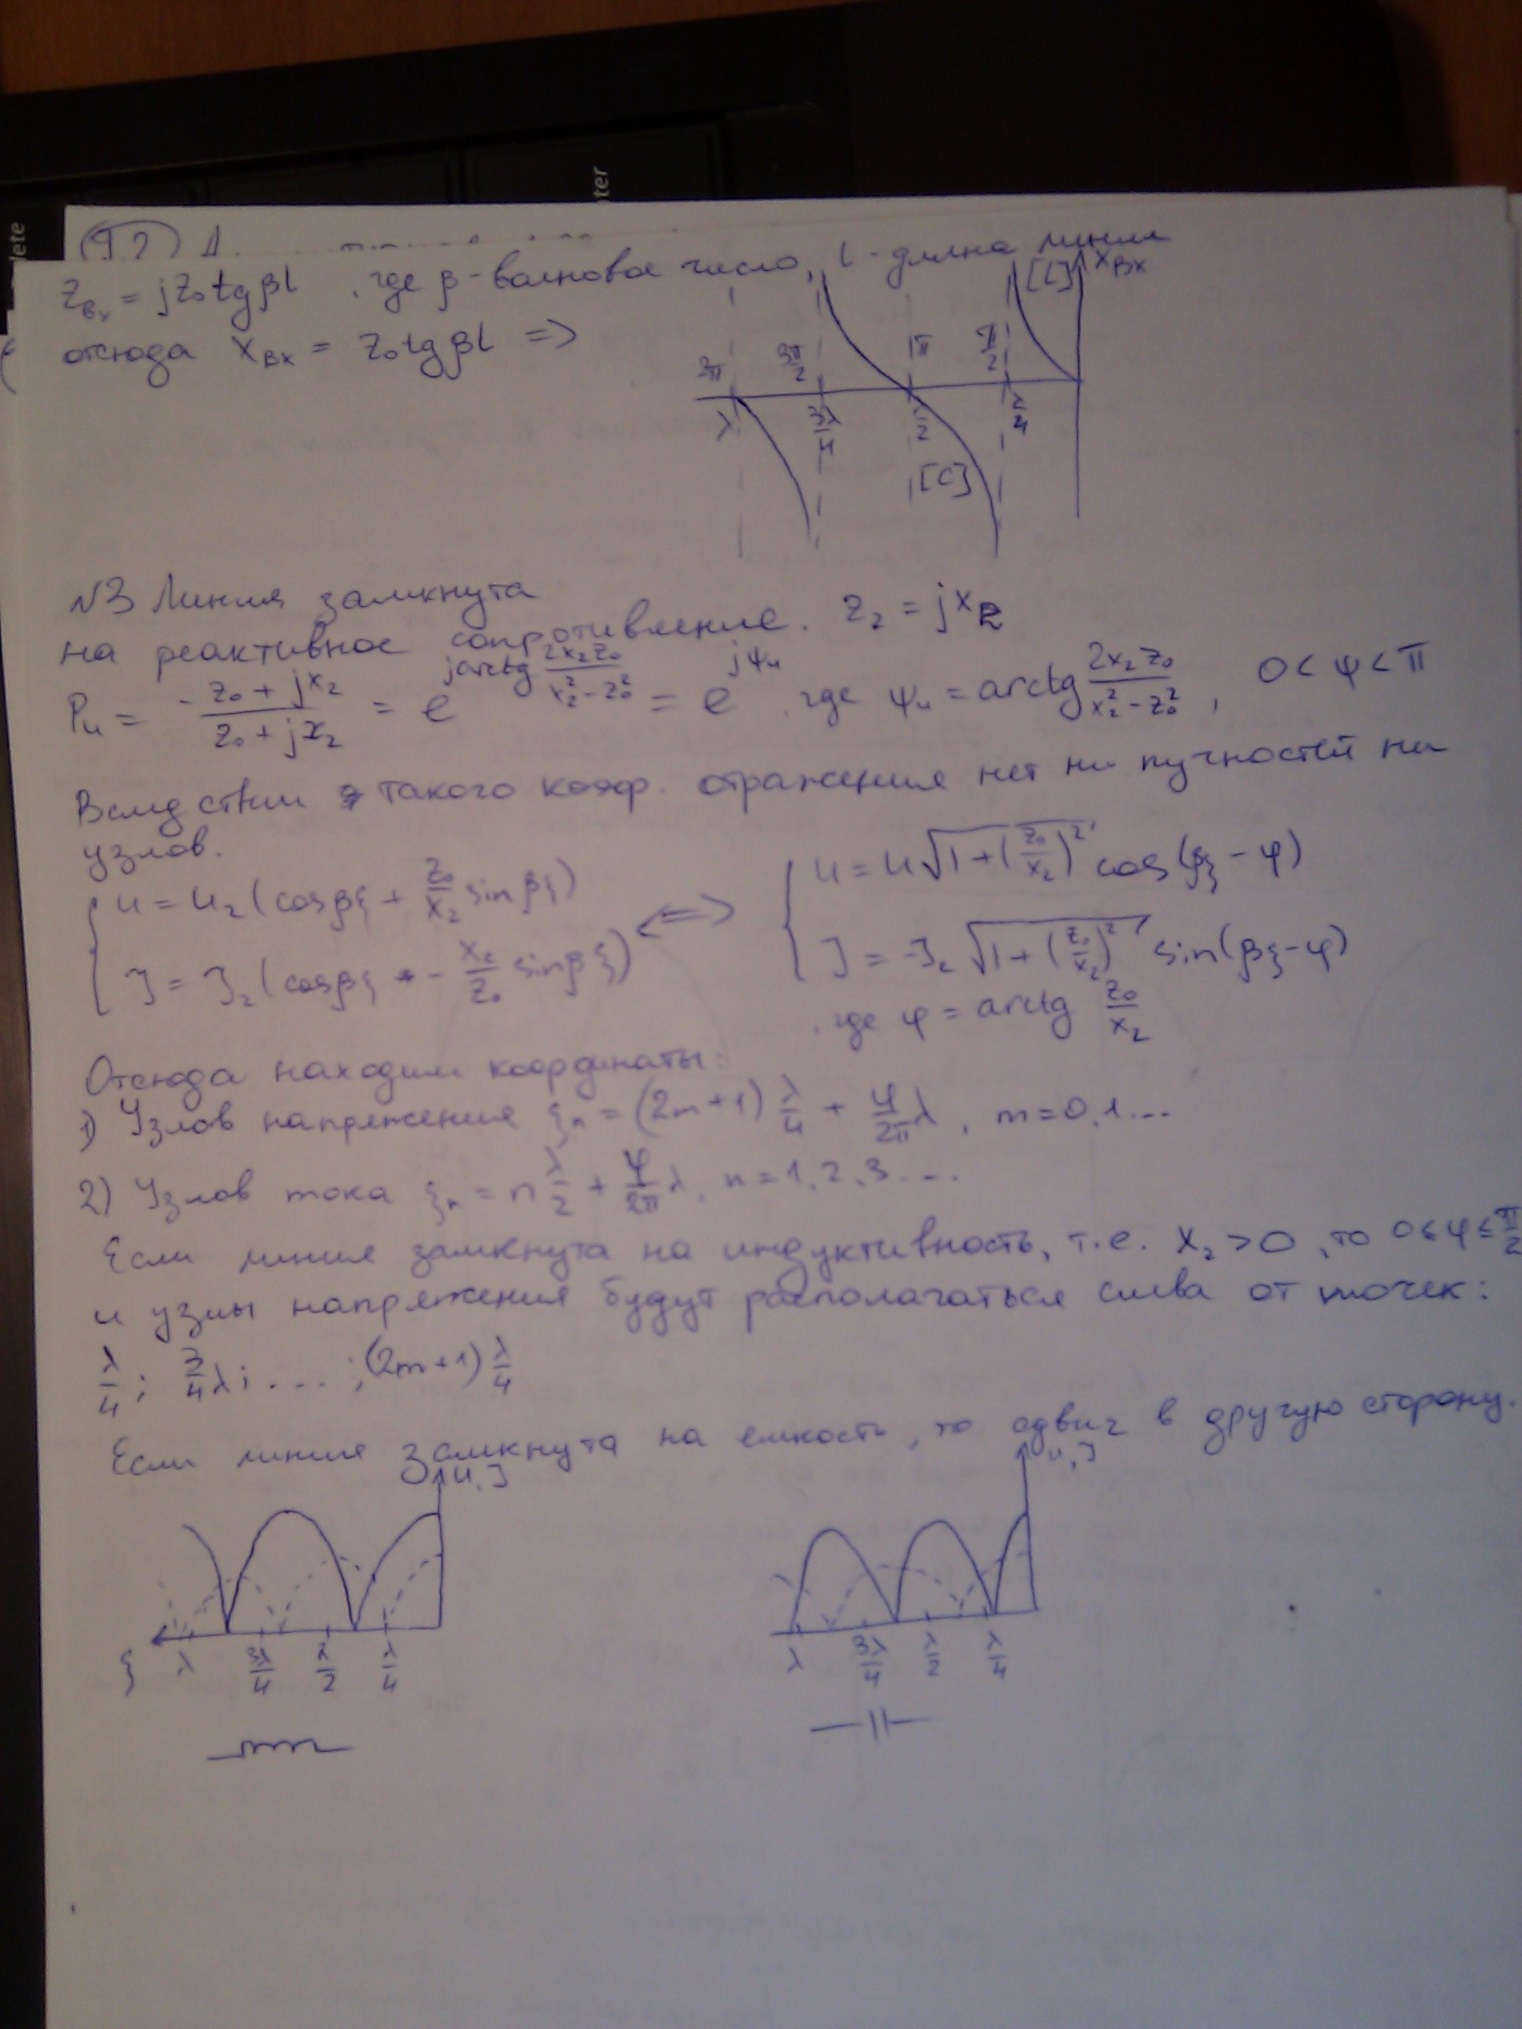 lete
ter
Z_вх = jZ₀tgβl , где β - волновое число, l - длина линии
отсюда X_вх = Z₀tgβl =>
[L] X_вх
2π 3π/2 π π/2
λ 3λ/4 λ/2 λ/4
[C]
N3 Линия замкнута
на реактивное сопротивление. Z₂ = jX₂
P_u = (-Z₀ + jX₂)/(Z₀ + jX₂) = e^(j arctg (2X₂Z₀)/(X₂² - Z₀²)) = e^(jψ_u) , где ψ_u = arctg (2X₂Z₀)/(X₂² - Z₀²) , 0 < ψ < π
Вследствии такого коэф. отражения нет ни пучностей ни
узлов.
{ U = U₂(cosβξ + Z₀/X₂ sinβξ) <=> { U = U√(1 + (Z₀/X₂)²) cos(βξ - φ)
J = J₂(cosβξ - X₂/Z₀ sinβξ) J = -J₂√(1 + (Z₀/X₂)²) sin(βξ - φ)
, где φ = arctg Z₀/X₂
Отсюда находим координаты:
1) Узлов напряжения ξₙ = (2m+1) λ/4 + φ/2π λ , m = 0,1...
2) Узлов тока ξₙ = n λ/2 + φ/2π λ, n = 1,2,3...
Если линия замкнута на индуктивность, т.е. X₂ > 0 , то 0 ≤ φ ≤ π/2
и узлы напряжения будут располагаться слева от точек:
λ/4 ; 3/4 λ; .... ; (2m+1) λ/4
Если линия замкнута на емкость, то сдвиг в другую сторону.
U, J
ξ λ 3λ/4 λ/2 λ/4
U, J
λ 3λ/4 λ/2 λ/4